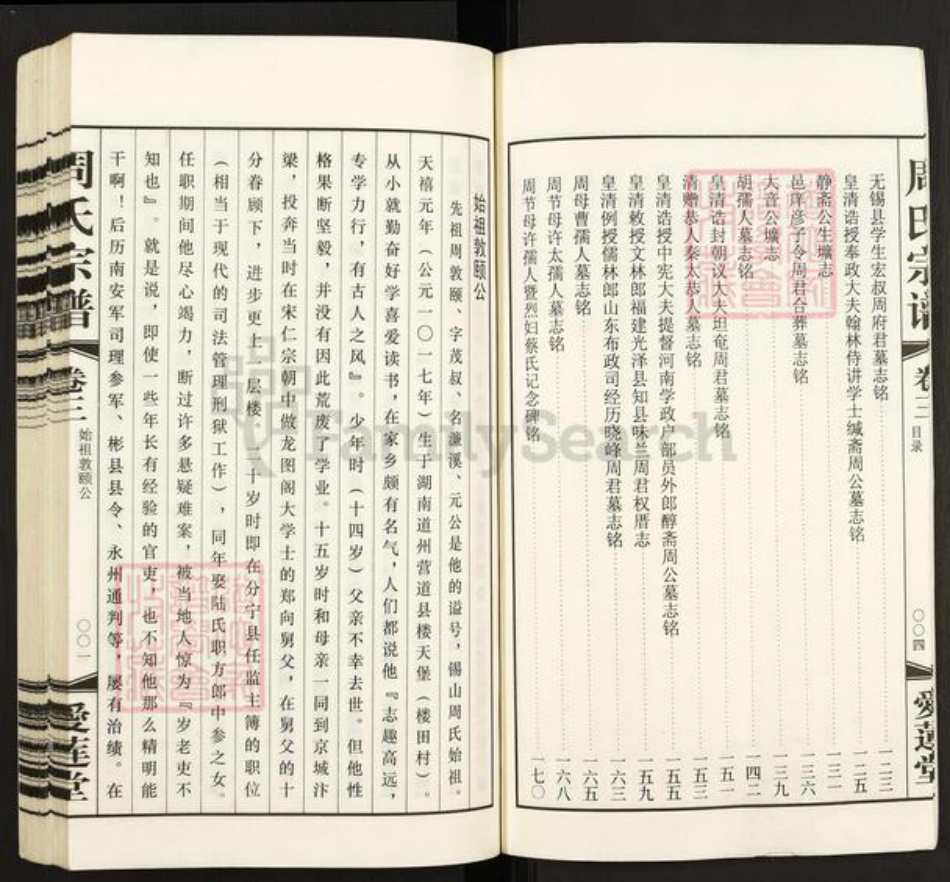 周氏宗谱
卷三
目录
〇〇四
爱莲堂
无锡县学生宏叔周府君墓志铭 一二三
皇清诰授奉政大夫翰林侍讲学士缄斋周公墓志铭 一二五
静斋公生圹志 一三一
邑庠彦子令周君合葬墓志铭 一三六
大音公圹志 一三九
胡孺人墓志铭 一四二
皇清诰封朝议大夫坦奄周君墓志铭 一五一
清赠恭人秦太恭人墓志铭 一五三
皇清诰授中宪大夫提督河南学政户部员外郎醇斋周公墓志铭 一五五
皇清敕授文林郎福建光泽县知县味兰周君权厝志 一五九
皇清例授儒林郎山东布政司经历晓峰周君墓志铭 一六三
周母曹孺人墓志铭 一六五
周节母许太孺人墓志铭 一六八
周节母许孺人暨烈妇蔡氏记念碑铭 一七〇
始祖敦颐公
先祖周敦颐、字茂叔、名濂溪、元公是他的谥号，锡山周氏始祖。
天禧元年（公元一〇一七年）生于湖南道州营道县楼天堡（楼田村）。
从小就勤奋好学喜爱读书，在家乡颇有名气，人们都说他『志趣高远，
专学力行，有古人之风』。少年时（十四岁）父亲不幸去世。但他性
格果断坚毅，并没有因此荒废了学业。十五岁时和母亲一同到京城汴
梁，投奔当时在宋仁宗朝中做龙图阁大学士的郑向舅父，在舅父的十
分眷顾下，进步更上一层楼，二十岁时即在分宁县任监主簿的职位
（相当于现代的司法管理刑狱工作），同年娶陆氏职方郎中参之女。
任职期间他尽心竭力，断过许多悬疑难案，被当地人惊为『岁老吏不
知也』。就是说，即使一些年长有经验的官吏，也不知他那么精明能
干啊！后历南安军司理参军、彬县县令、永州通判等，屡有治绩。在
周氏宗谱
卷三
始祖敦颐公
〇〇一
爱莲堂
FamilySearch